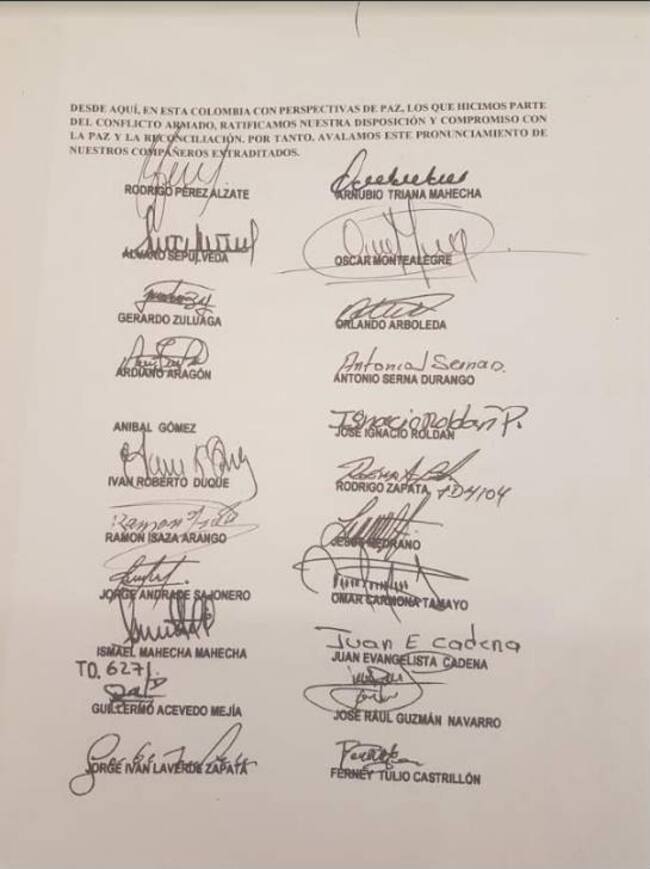 DESDE AQUÍ, EN ESTA COLOMBIA CON PERSPECTIVAS DE PAZ, LOS QUE HICIMOS PARTE
DEL CONFLICTO ARMADO, RATIFICAMOS NUESTRA DISPOSICIÓN Y COMPROMISO CON
LA PAZ Y LA RECONCILIACIÓN. POR TANTO, AVALAMOS ESTE PRONUNCIAMIENTO DE
NUESTROS COMPAÑEROS EXTRADITADOS.
RODRIGO PÉREZ ALZATE
ARNUBIO TRIANA MAHECHA
ALVARO SEPULVEDA
OSCAR MONTEALEGRE
GERARDO ZULUAGA
ORLANDO ARBOLEDA
ARDIANO ARAGÓN
Antonio Serna D.
ANTONIO SERNA DURANGO
ANIBAL GÓMEZ
Ignacio Roldan P.
JOSE IGNACIO ROLDAN
IVAN ROBERTO DUQUE
RODRIGO ZAPATA
Ramon Isaza
RAMON ISAZA ARANGO
JESÚS PEDRANO
JORGE ANDRADE SAJONERO
OMAR CARMONA TAMAYO
ISMAEL MAHECHA MAHECHA
Juan E Cadena
JUAN EVANGELISTA CADENA
TD. 6271
GUILLERMO ACEVEDO MEJÍA
JOSÉ RAUL GUZMÁN NAVARRO
JORGE IVAN LAVERDE ZAPATA
FERNEY TULIO CASTRILLÓN